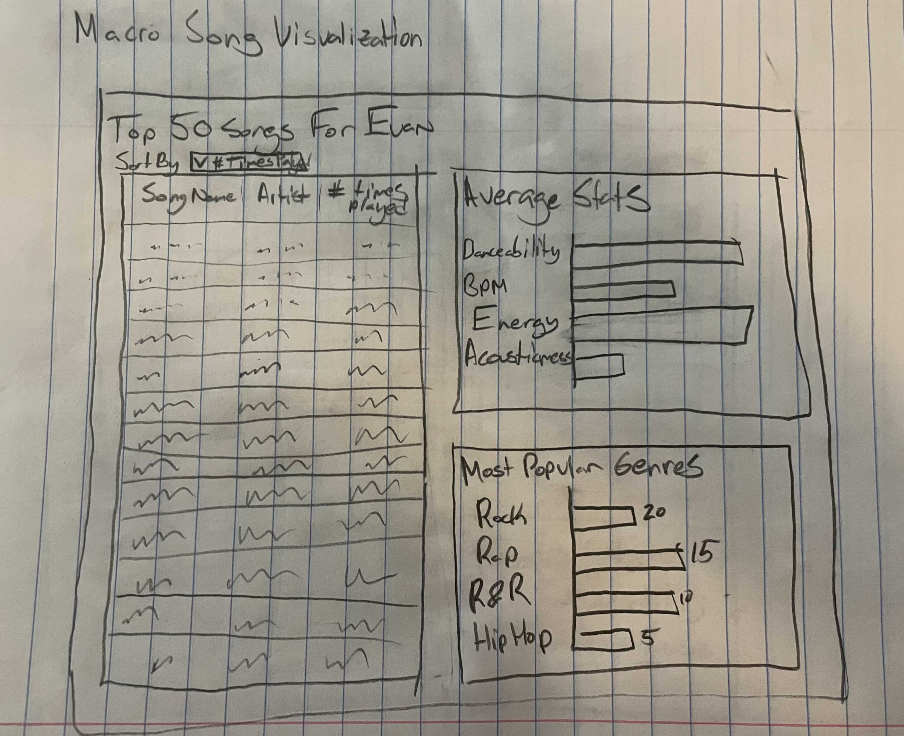 Macro Song Visualization
Top 50 Songs For Evan
Sort By # Times Played
Song Name Artist # times played
Average Stats
Danceability
BPM
Energy
Acousticness
Most Popular Genres
Rock 20
Rap 15
R&R 10
Hip Hop 5